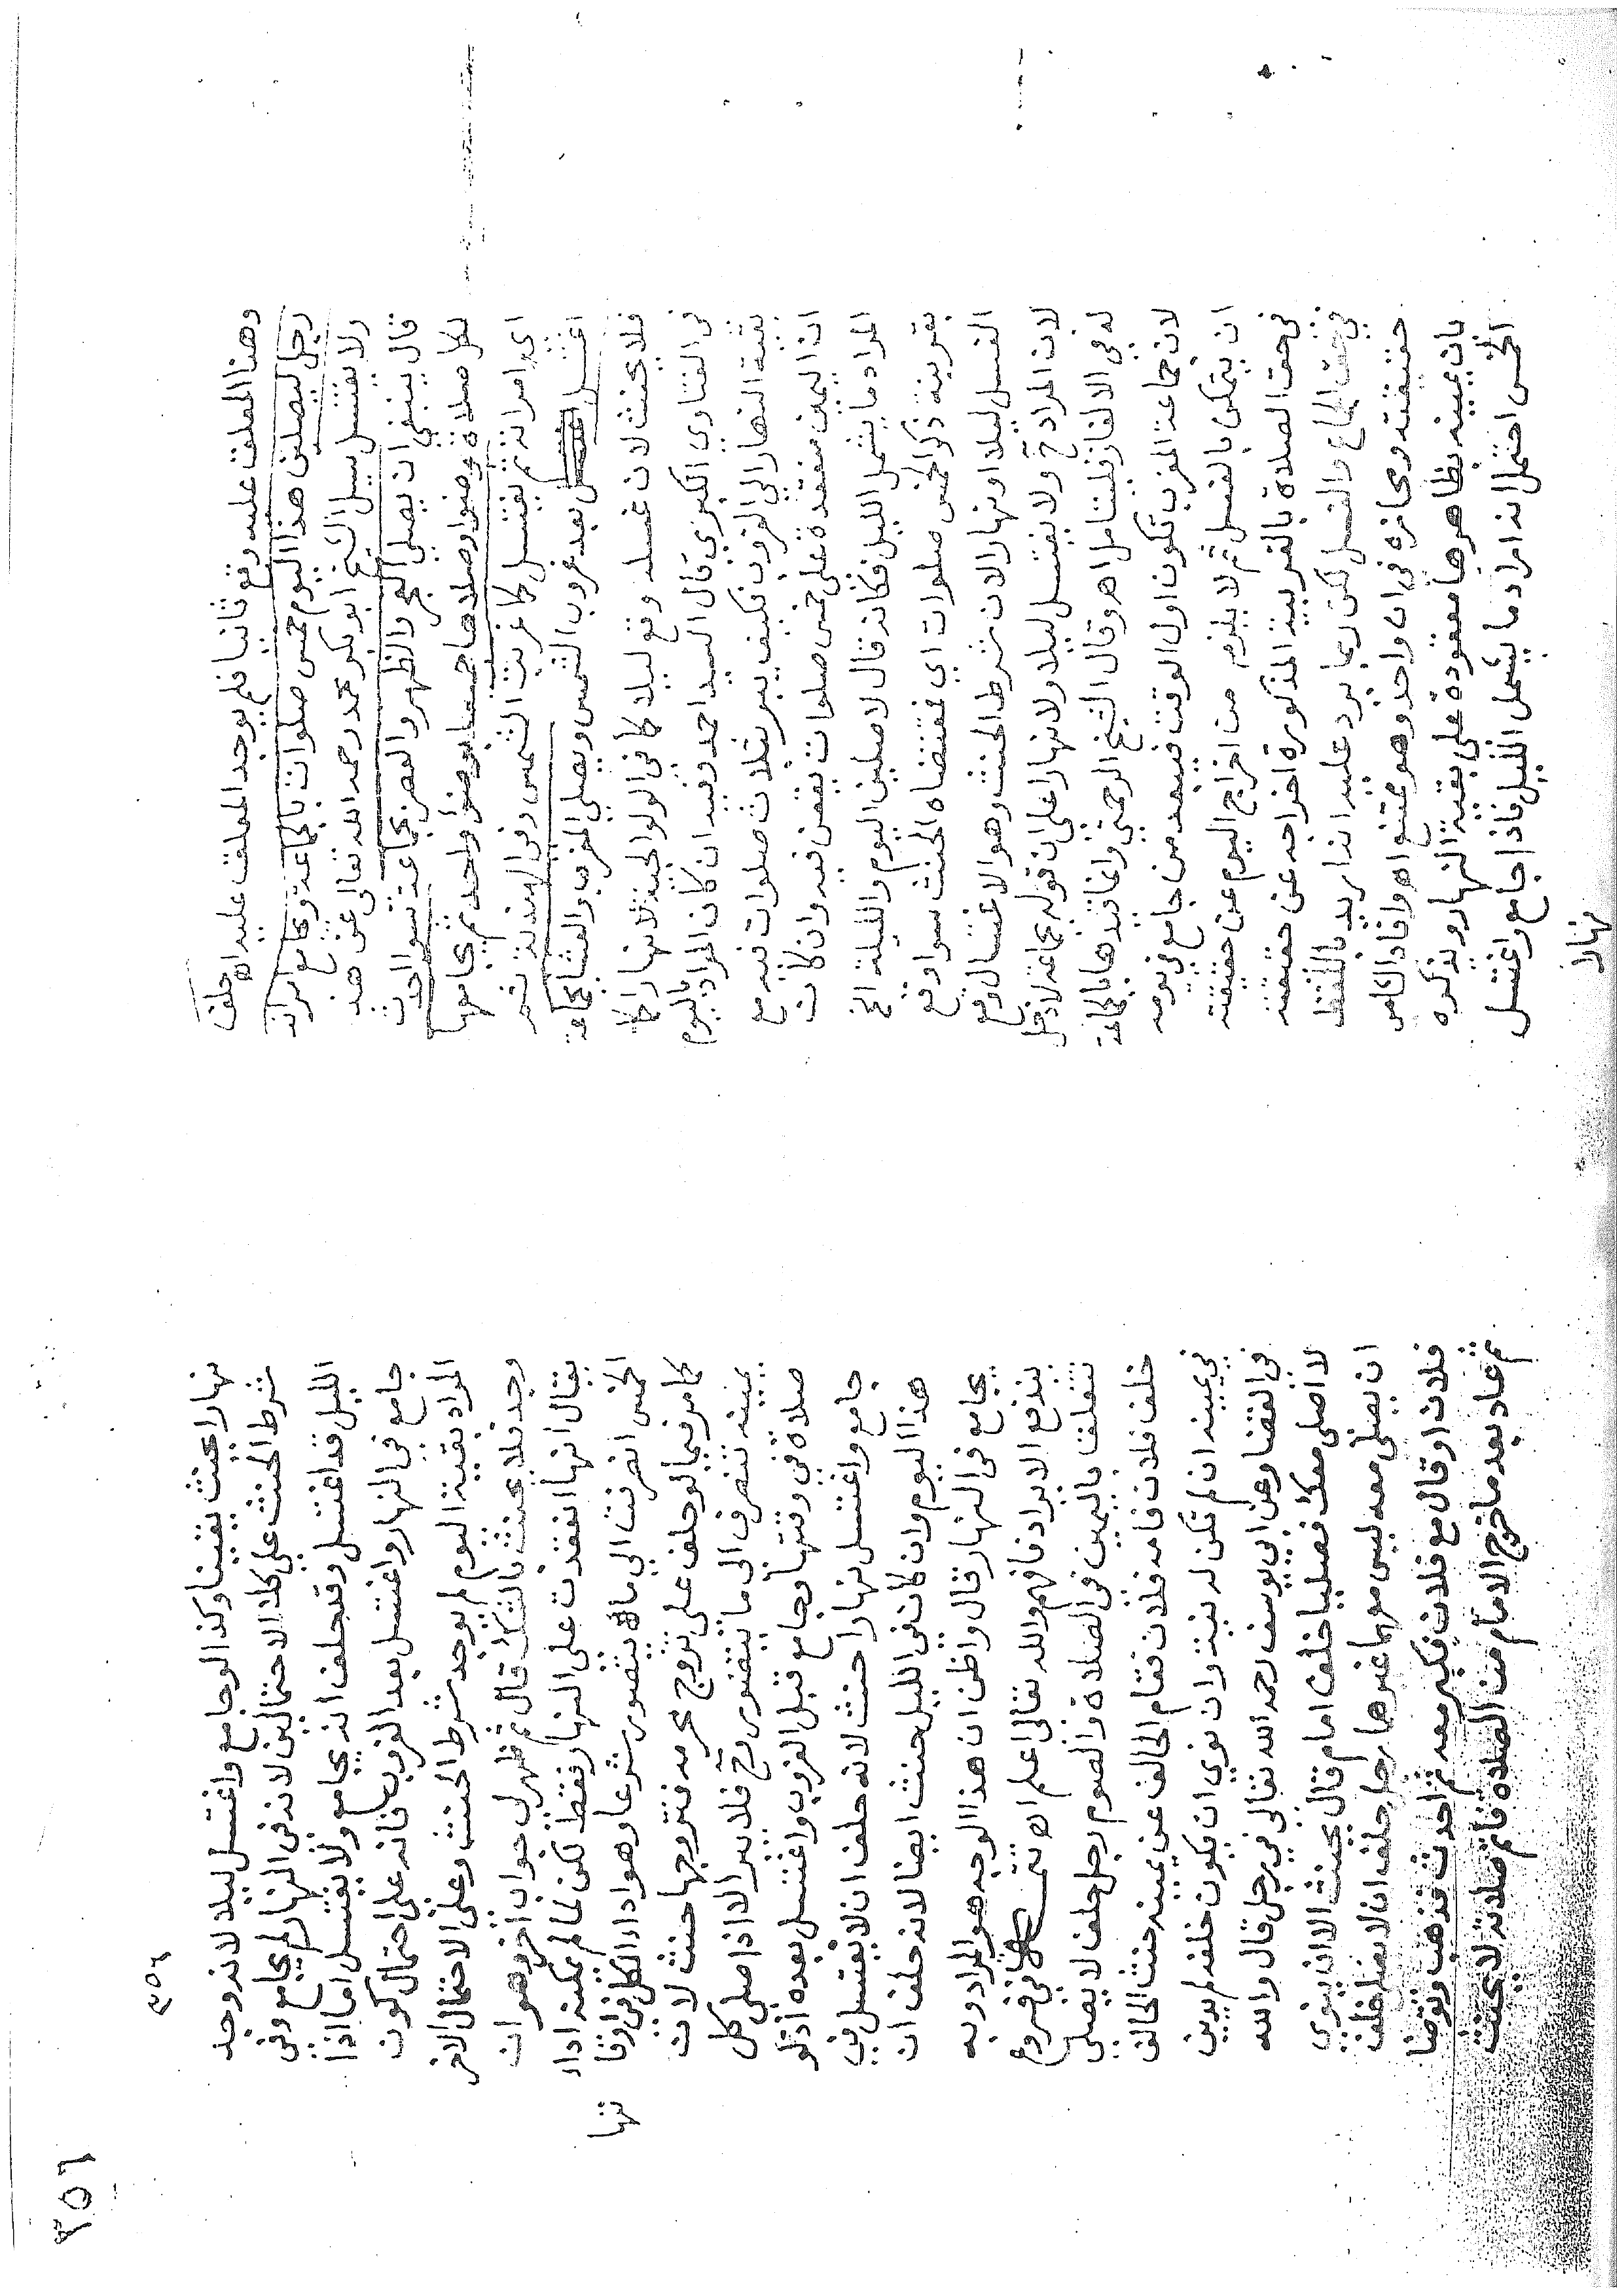 وهنا المعلق عليه وقع ثانيا فلم يوجد المعلق عليه اه حلف
رجل ليصلين هذا اليوم خمس صلوات بالجماعة ويجامع امراته
ولا يغتسل سيل الشيخ ابو بكر محمد رحمه الله تعالى عن هذا
قال ينبغي ان يصلي الفجر والظهر والعصر بجماعة
لكل صلاة وضوا وصلاها جميعا بوضوا واحد ثم يجامعها
اي امراته ثم يغتسل كما غربت الشمس وفي
اغتسل بعد غروب الشمس ويصلي المغرب والعشا بجماعة
فلا يحنث لان غسله وقع ليلا كما في الولوالجية لا نهارا
في الفتاوى الكبرى قال السيد احمد وفيه ان كان المراد باليوم
بقية النهار الي الغروب فكيف يبر بثلاث صلوات فيه مع
ان اليمين منعقدة على خمس صلوات يقعن فيه وان كان
المراد ما يشمل الليل فكانه قال لاصلين اليوم والليلة الخ
بقرينة ذكر الخمس صلوات اي فمقتضاه الحنث سوا وقع
الغسل ليلا او نهارا لان شرط الحنث وهو الاغتسال وقع
لان المراد ح ولا يغتسل ليلا ولا نهارا على ان قوله بجماعة لا دخل
له في الالغاز فليتامل اه وقال الشيخ الرحمتي وانما قيدها بالجماعة
لان جماعة المغرب تكون اول الوقت فيبعد من جامع في يومه
ان يتمكن بالغسل ثم لا يلزم من اخراج اليوم عن حقيقته
في حق الصلاة بالقرينة المذكورة اخراجه عن حقيقته
في حق الجماع والغسل لكن ربما يرد عليه انه اريد باللفظ
حقيقته ومجازه في ان واحد وهو ممتنع اه وافاد الكامل
بان يمينه بظاهرها معقودة على بقية النهار وبذكره
الخمس احتمل انه اراد ما يشمل الليل فاذا جامع واغتسل
نهارا
٣٥٦
٣٥٦
نهارا يحنث يقينا وكذا لو جامع واغتسل ليلا لانه وجد
شرط الحنث على كلا الاحتمالين لانه في النهار لم يجامع وفي
الليل قد اغتسل وقد حلف انه يجامع ولا يغتسل اما اذا
جامع في النهار واغتسل بعد الغروب فانه على احتمال كون
المراد بقية اليوم لم يوجد شرط الحنث وعلى الاحتمال الاخر
وجد فلا يحنث بالشك قال ثم ظهر لي جواب اخر وهو ان
يقال انها انعقدت على النهار فقط لكن لما لم يمكنه اداء
الخمس انصرفت الي ما يتصور شرعا وهو اداء الكل في اوقا
تها
كما مر فيما لو حلف على تزوج محرمه فتزوجها حنث لان
يمينه تنصرف الى ما يتصور ح فلا يبر الا اذا صلى كل
صلاة في وقتها وجامع قبل الغروب واغتسل بعده اذ لو
جامع واغتسل نهارا حنث لانه حلف ان لا يغتسل في
هذا اليوم وان كان في الليل حنث ايضا لانه حلف ان
يجامع في النهار قال واظن ان هذا الوجه هو المراد وبه
يندفع الايراد فافهم والله تعالى اعلم اه تتمـة في فروع
تتعلق باليمين في الصلاة والصوم رجل حلف لا يصلي
خلف فلان فامه فلان فقام الحالف عن يمينه حنث الحالف
في يمينه ان لم تكن له نية وان نوى ان يكون خلفه لم يدين
في القضا وعن ابي يوسف رحمه الله تعالى في رجل قال والله
لا اصلي معك فصليا خلف امام قال يحنث الا ان ينوي
ان يصلي معه ليس معهما غيرهما رجل حلف ان لا يصلي خلف
فلان او قال مع فلان فكبر معه ثم احدث فذهب وتوضا
ثم عاد بعد ما خرج الامام من الصلاة فاتم صلاته لا يحنث